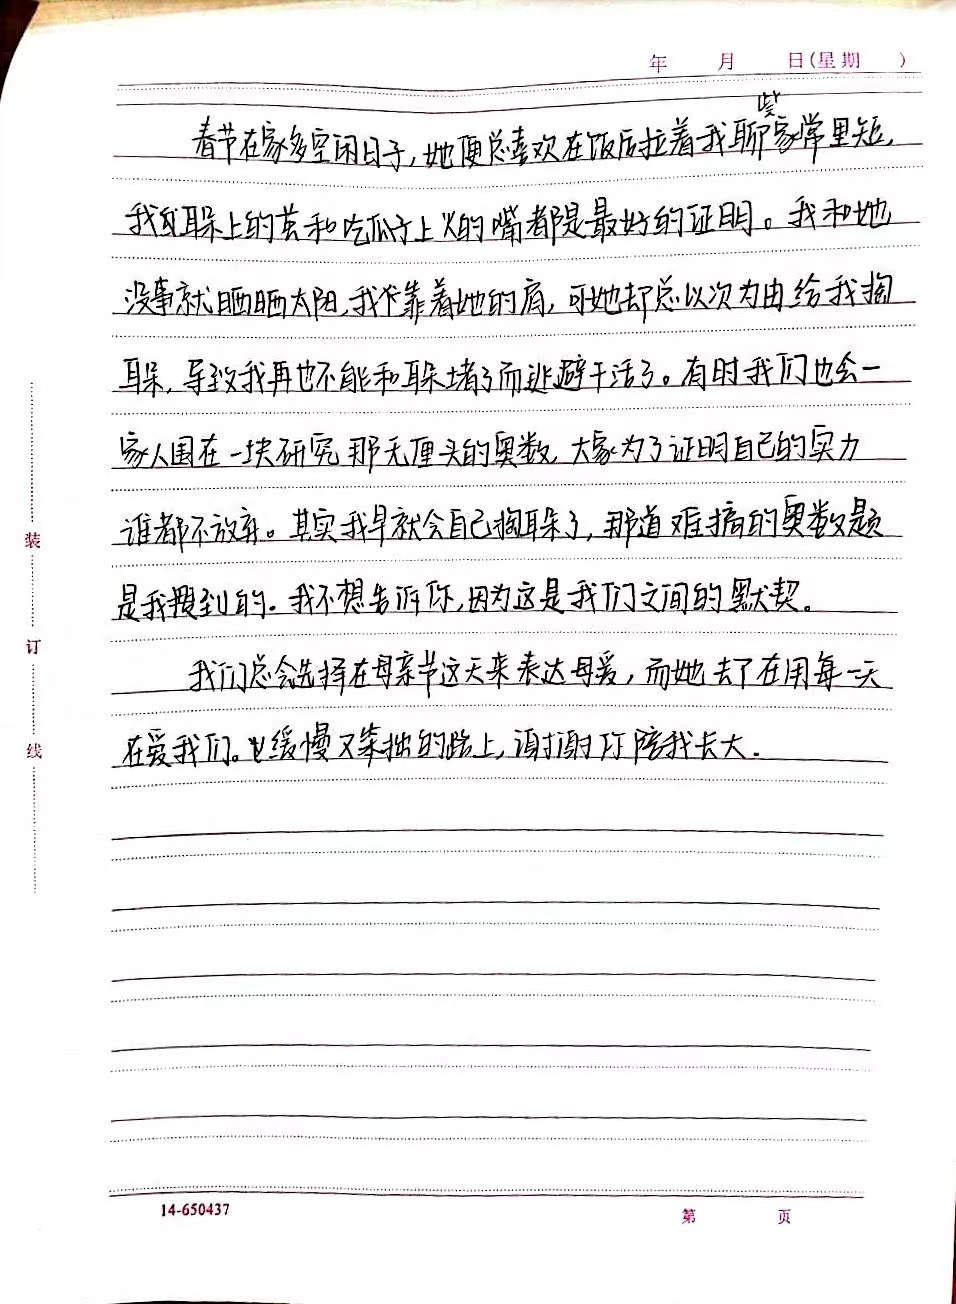 年 月 日(星期 )
些
春节在家多空闲日子,她便总喜欢在饭后拉着我聊家常里短,
我耳朵上的茧和吃瓜子上火的嘴都是最好的证明。我和她
没事就晒晒太阳,我靠着她的肩,可她却总以次为由给我掏
耳朵,导致我再也不能和耳朵堵了而逃避干活了。有时我们也会一
家人围在一块研究那无厘头的奥数,大家为了证明自己的实力
谁都不放弃。其实我早就会自己掏耳朵了,那道难搞的奥数题
是我搜到的。我不想告诉你,因为这是我们之间的默契。
我们总会选择在母亲节这天来表达母爱,而她去了在用每一天
在爱我们。缓慢又笨拙的路上,谢谢你陪我长大.
装
订
线
14-650437
第 页